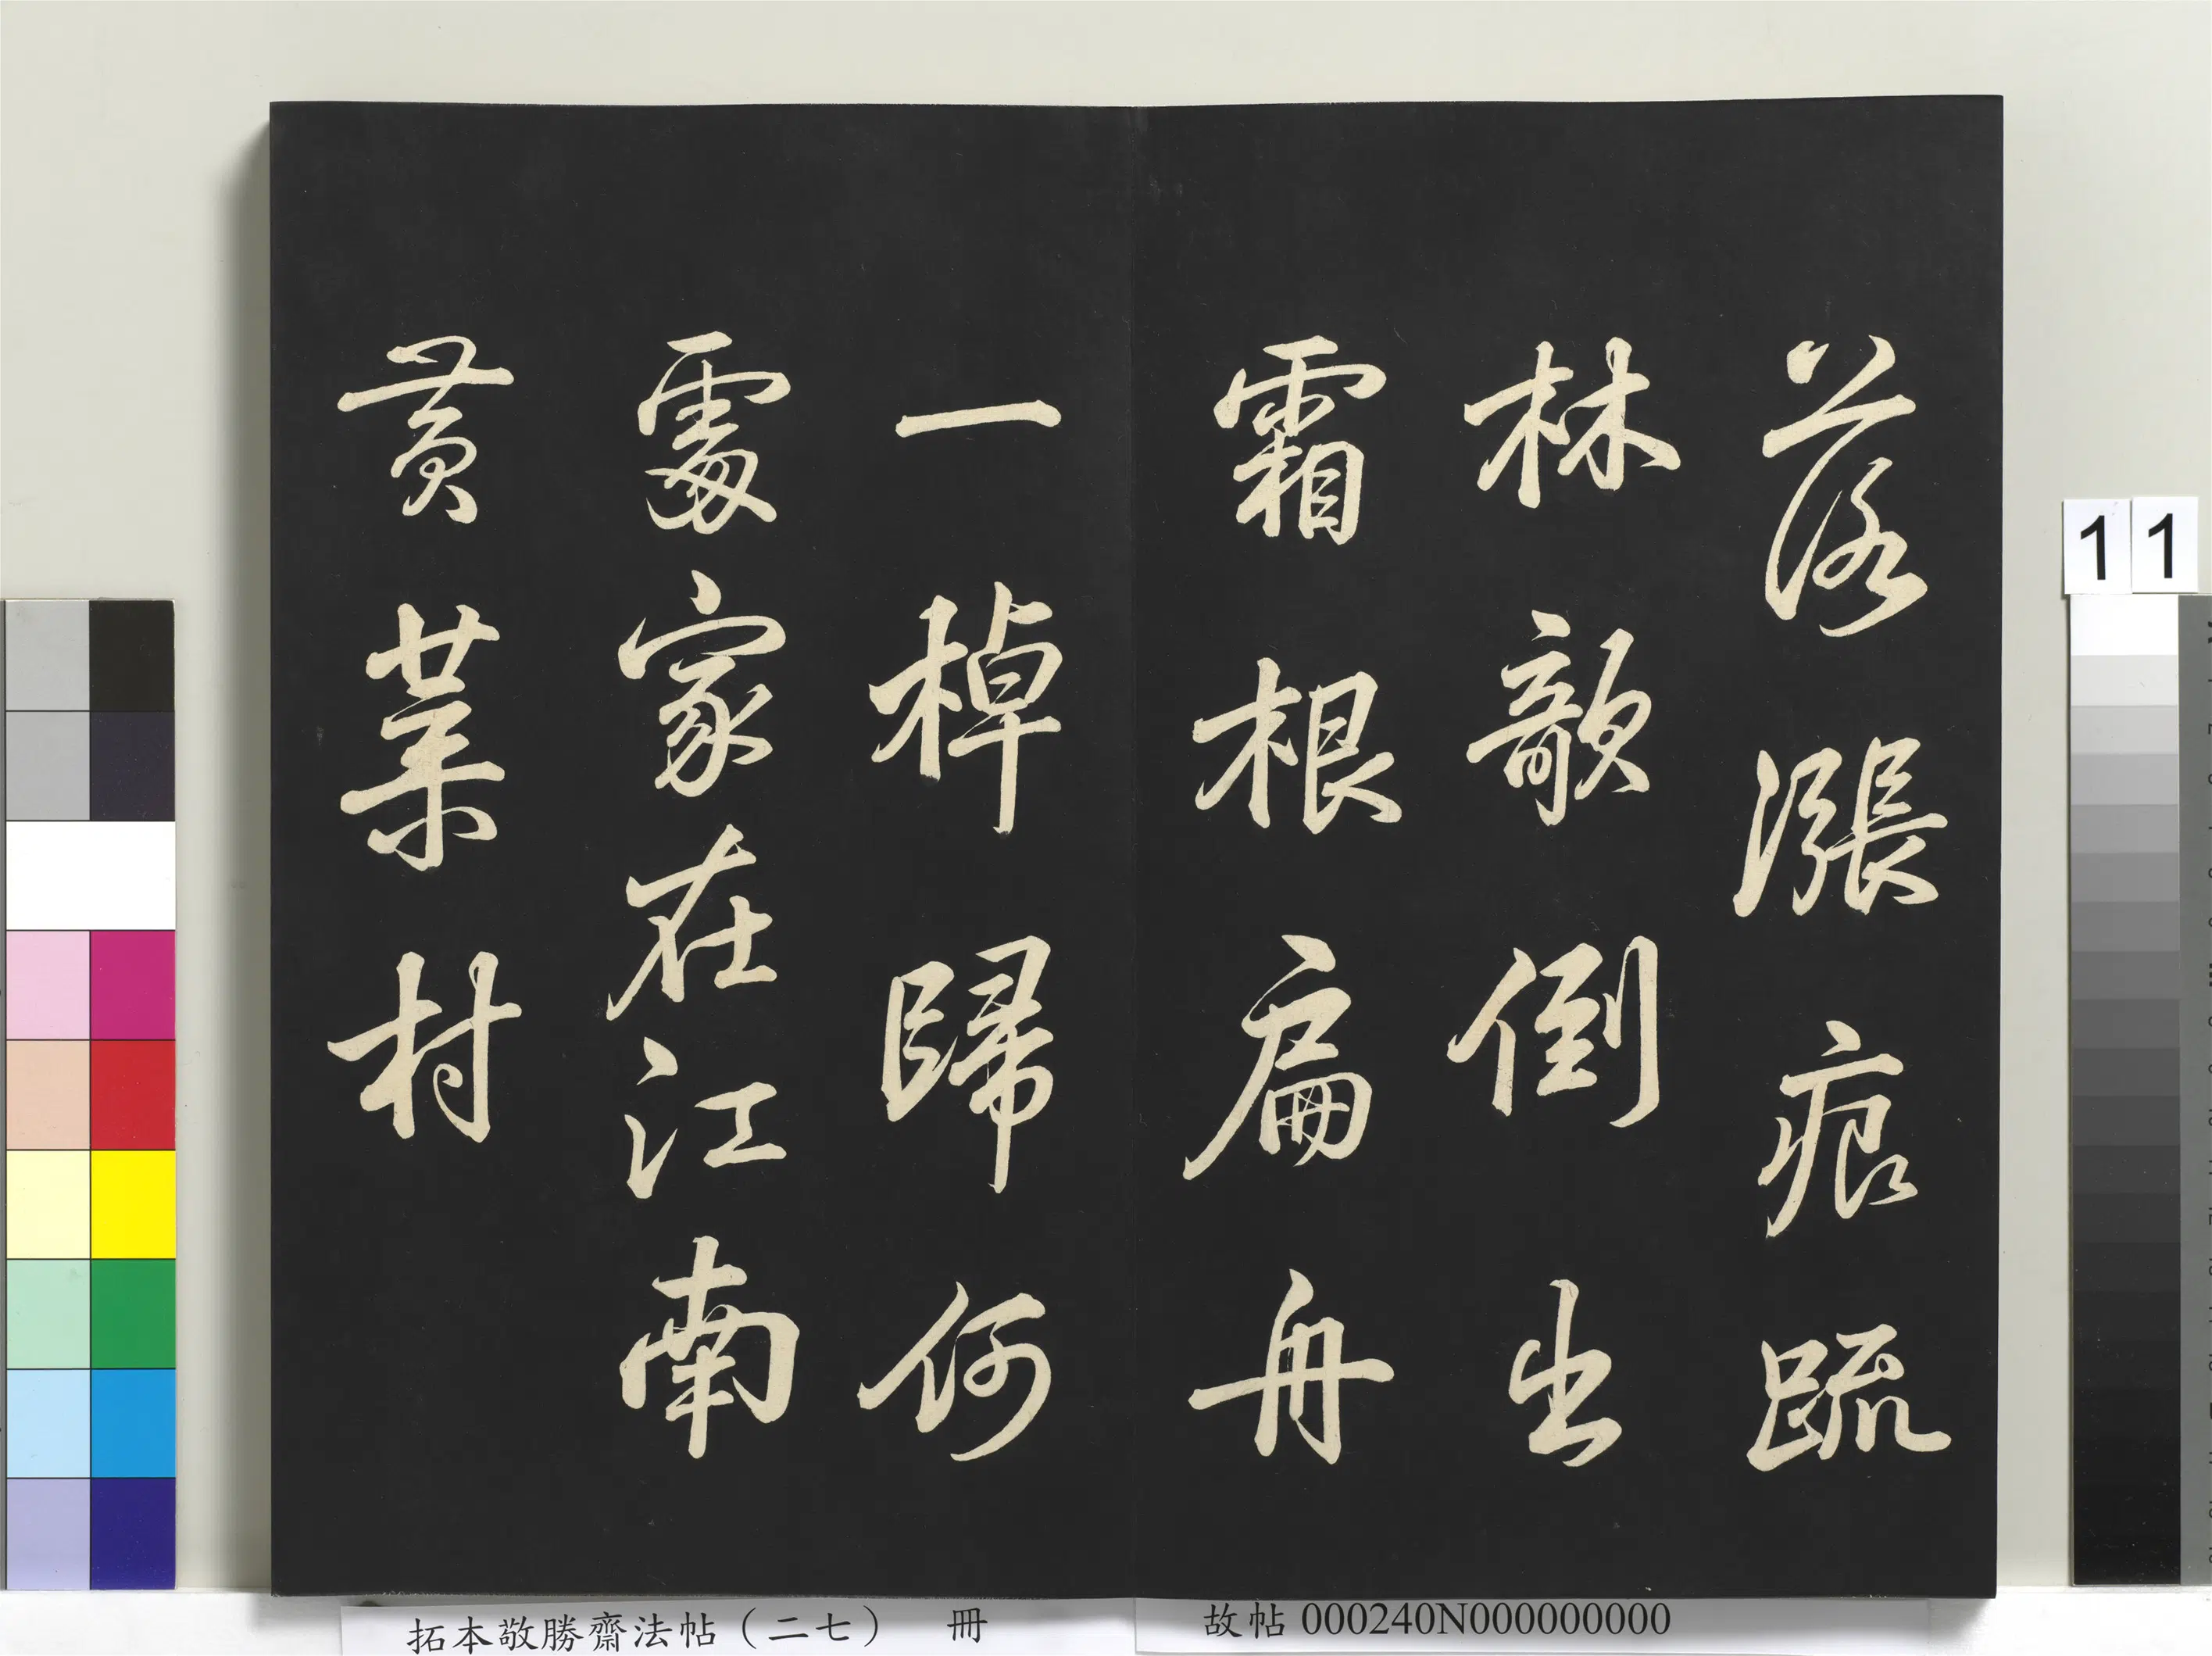 落漲痕疏
林歆倒出
霜根扁舟
一棹歸何
處家在江南
黃葉村
11
拓本敬勝齋法帖（二七） 冊
故帖 000240N000000000